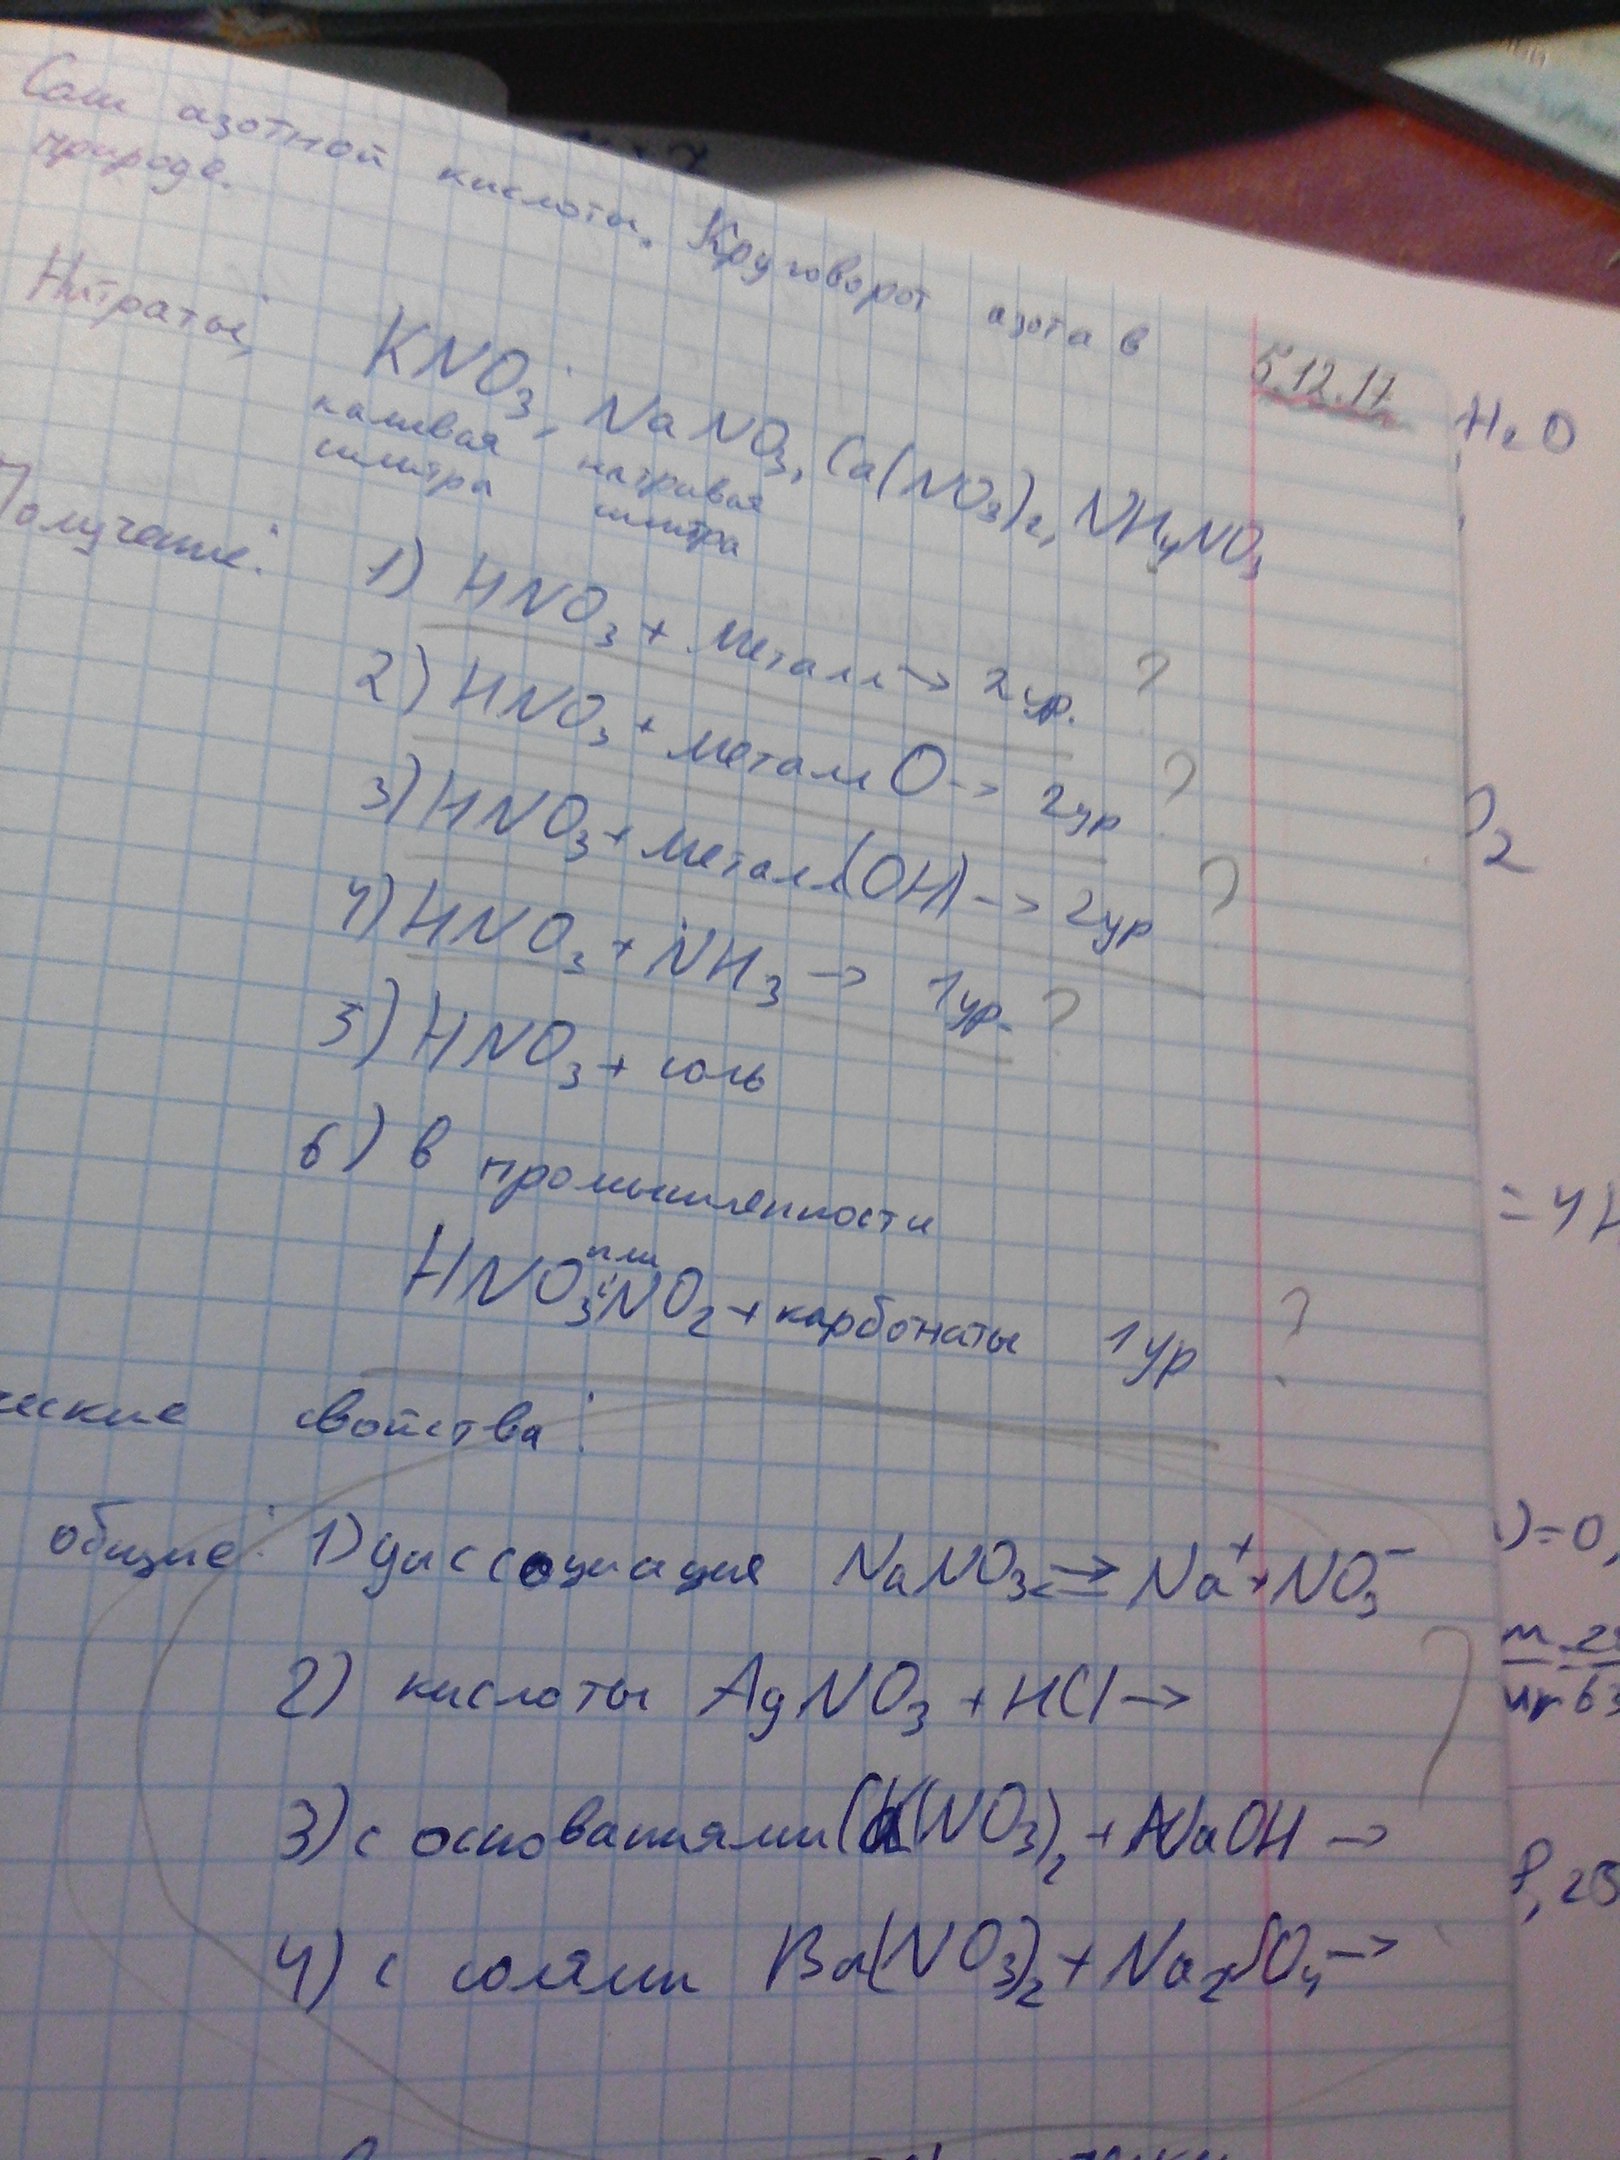 Соли азотной кислоты. Круговорот азота в
природе.
5.12.17
Нитраты: KNO3, NaNO3, Ca(NO3)2, NH4NO3
калиевая натриевая
силитра силитра
Получение:
1) HNO3 + металл → 2 ур. ?
2) HNO3 + металл O → 2 ур ?
3) HNO3 + металл(OH) → 2 ур ?
4) HNO3 + NH3 → 1 ур. ?
5) HNO3 + соль
6) в промышленности
или
HNO3 NO2 + карбонаты 1 ур ?
ческие свойства:
общие: 1) диссоциация NaNO3 ⇄ Na+ + NO3-
2) кислоты AgNO3 + HCl →
3) с основаниями (NO3)2 + NaOH →
4) с солями Ba(NO3)2 + Na2SO4 →
H2O
2
= 4H
)=0,